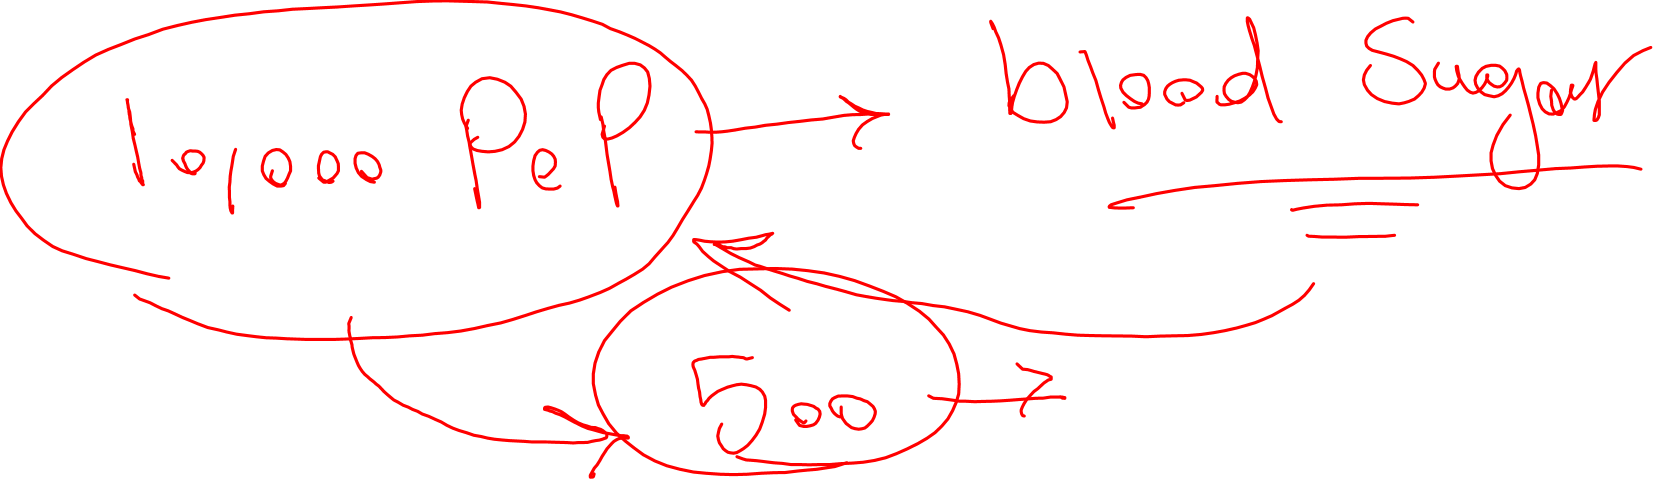 10,000 PeP
blood Sugar
500